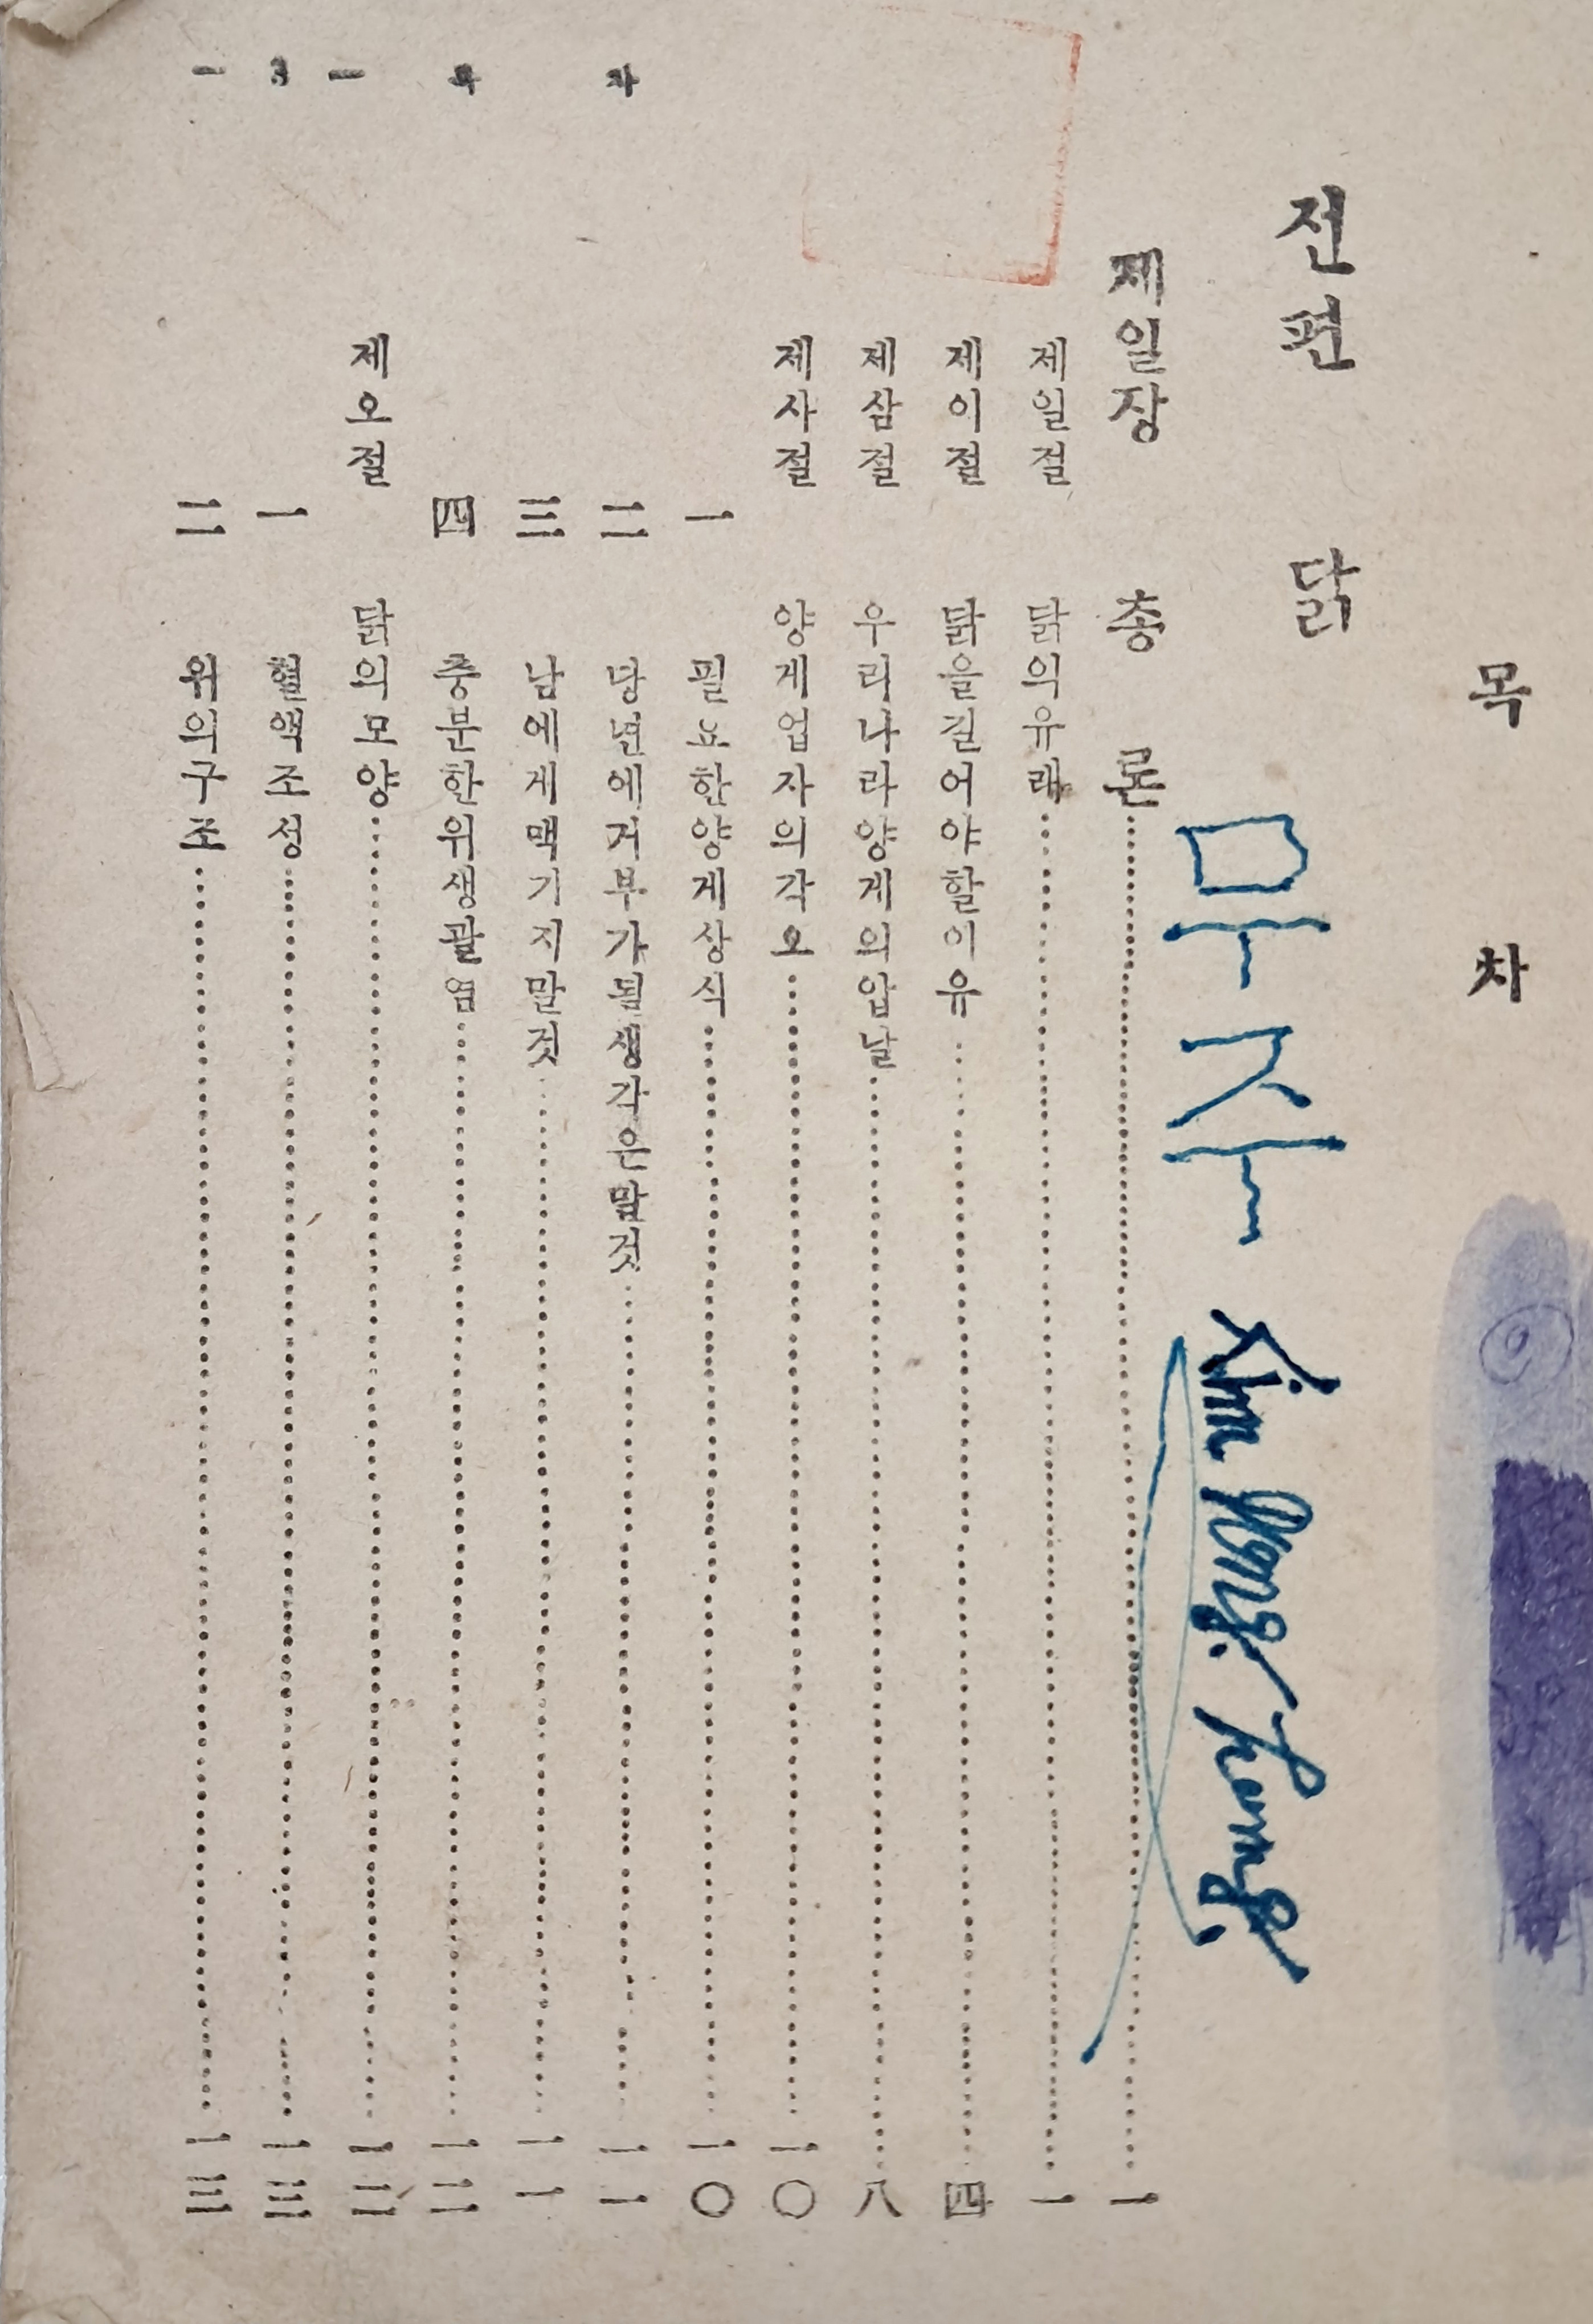 목차
전편 닭
무 주 Kim
제일장 총론 一
제일절 닭의유래 一
제이절 닭을길어야할이유 四
제삼절 우리나라양게의압날 八
제사절 양게업자의각오 一〇
一 필요한양게상식 一〇
二 당년에거부가될생각은말것 一一
三 남에게맥기지말것 一一
四 충분한위생괄염 一二
제오절 닭의모양 一二
一 혈액조성 一三
二 위의구조 一三
— 3 — 목 차